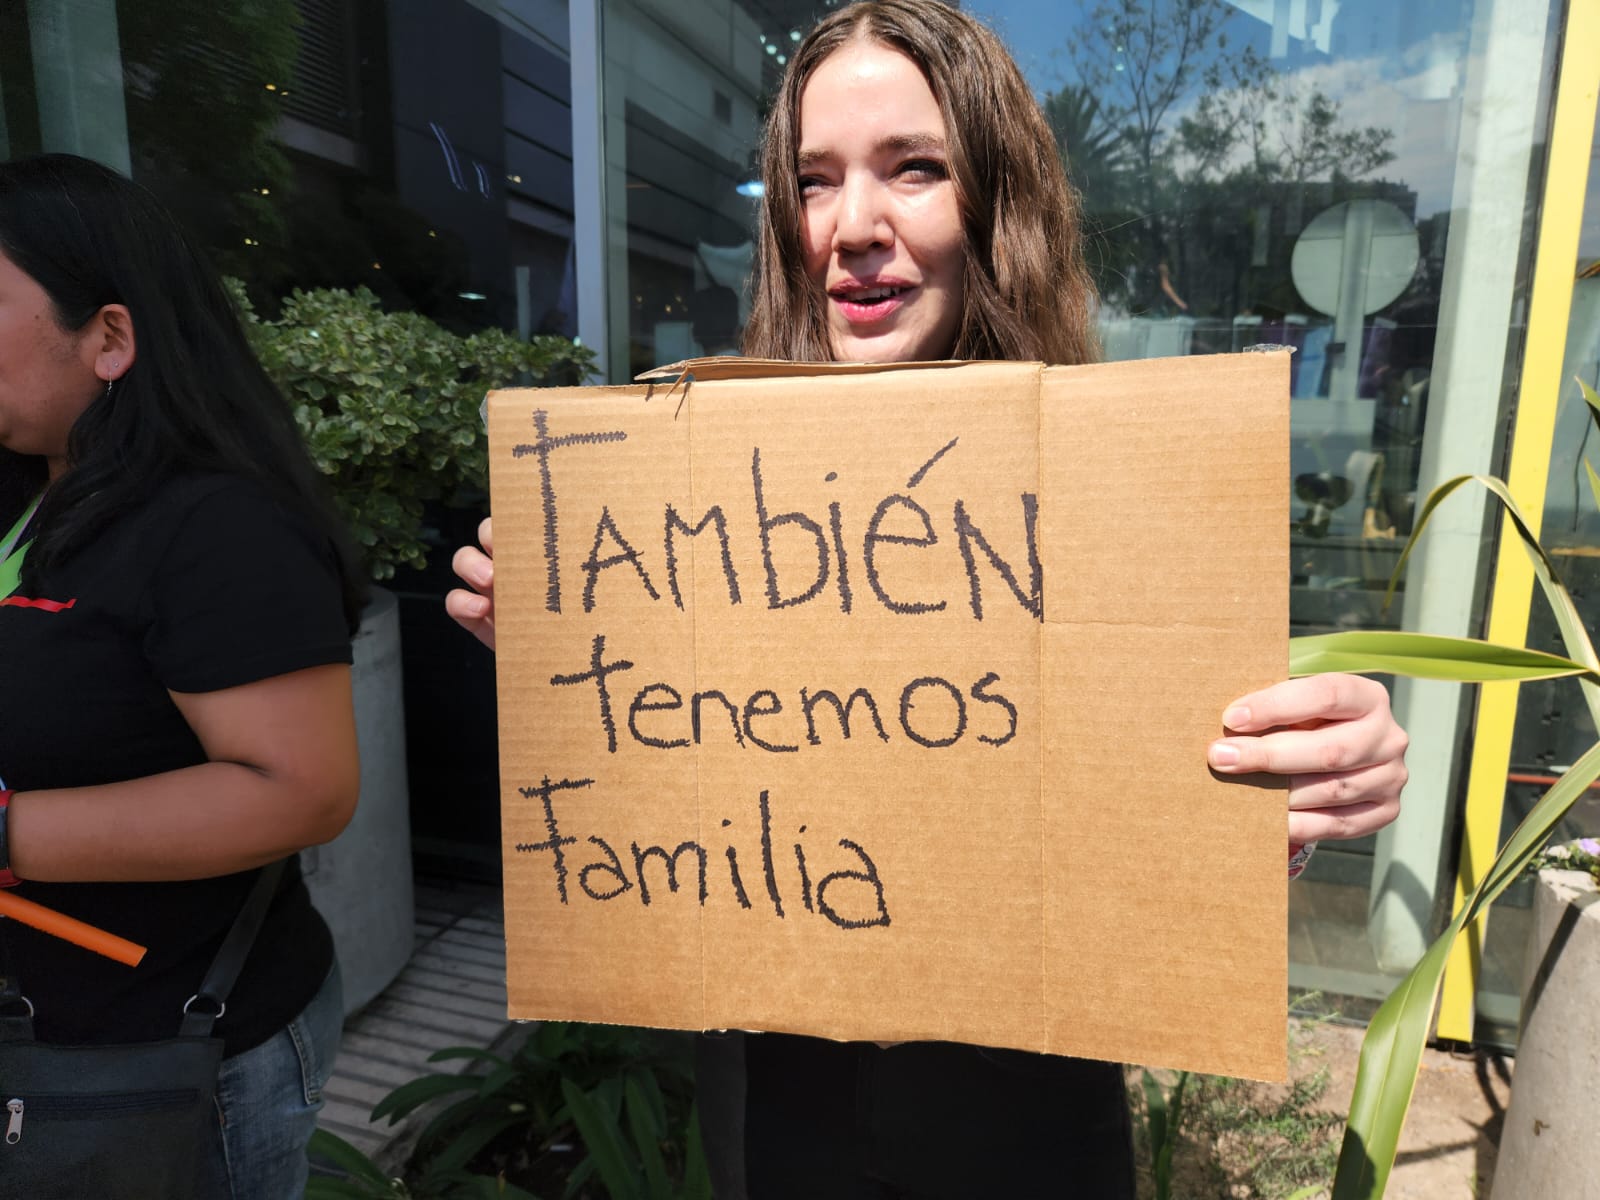 También
tenemos
Familia